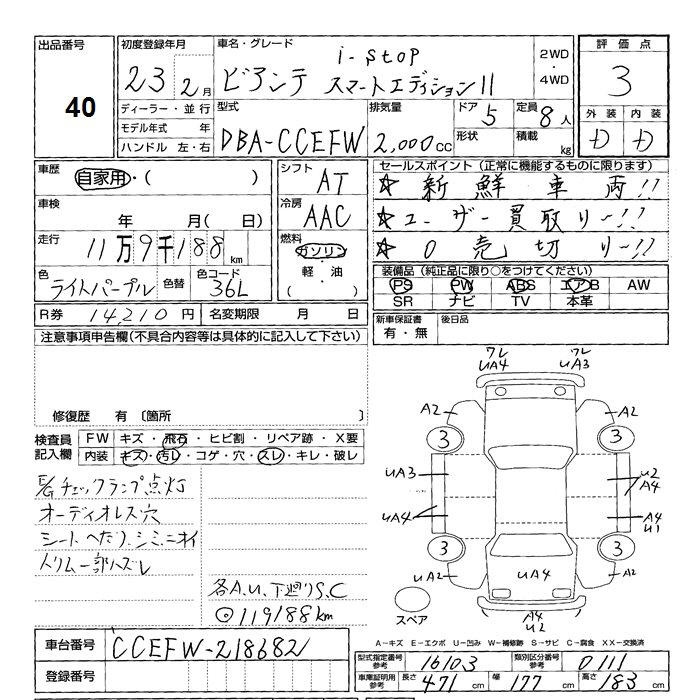 出品番号
40
初度登録年月
23 2月
ディーラー・並行
モデル年式 年
ハンドル 左・右
車名・グレード
i-stop
ビアンテ スマートエディションII
2WD
・
4WD
型式
DBA-CCEFW
排気量
2,000cc
ドア 5
形状
定員 8人
積載 kg
評価点
3
外装 内装
D D
車歴
自家用・( )
車検
年 月( 日)
走行
11万9千188km
色
ライトパープル
色替
色コード
36L
シフト
AT
冷房
AAC
燃料
ガソリン
軽・油
( )
セールスポイント(正常に機能するものに限ります)
☆ 新鮮車両!!
☆ ユーザー買取り〜!!
☆ 0売切り〜!!
装備品(純正品に限り○をつけてください)
PS PW ABS エアB AW
SR ナビ TV 本革
R券 14,210円
名変期限 月 日
新車保証書
有・無
後日品
注意事項申告欄(不具合内容等は具体的に記入して下さい)
修復歴 有〔箇所 〕
検査員
記入欄
FW キズ・飛石・ヒビ割・リペア跡・X要
内装 キズ・汚レ・コゲ・穴・スレ・キレ・破レ
E/gチェックランプ点灯
オーディオレス穴
シートヘたり、シミ、ニオイ
トリム一部ハズレ
各A.U、下廻りS.C
◎119188km
ワレ
UA4
ワレ
UA3
A2
A2
3
3
UA3
U2
A4
UA4
A4
U1
3
3
UA2
UA2
UA4
A4
U2
スペア
A－キズ E－エクボ U－凹み W－補修跡 S－サビ C－腐食 XX－交換済
車台番号
CCEFW-218682
登録番号
型式指定番号
参考
16103
類別区分番号
参考
0111
車庫証明用
参考
長さ 471cm
幅 177cm
高さ 183cm